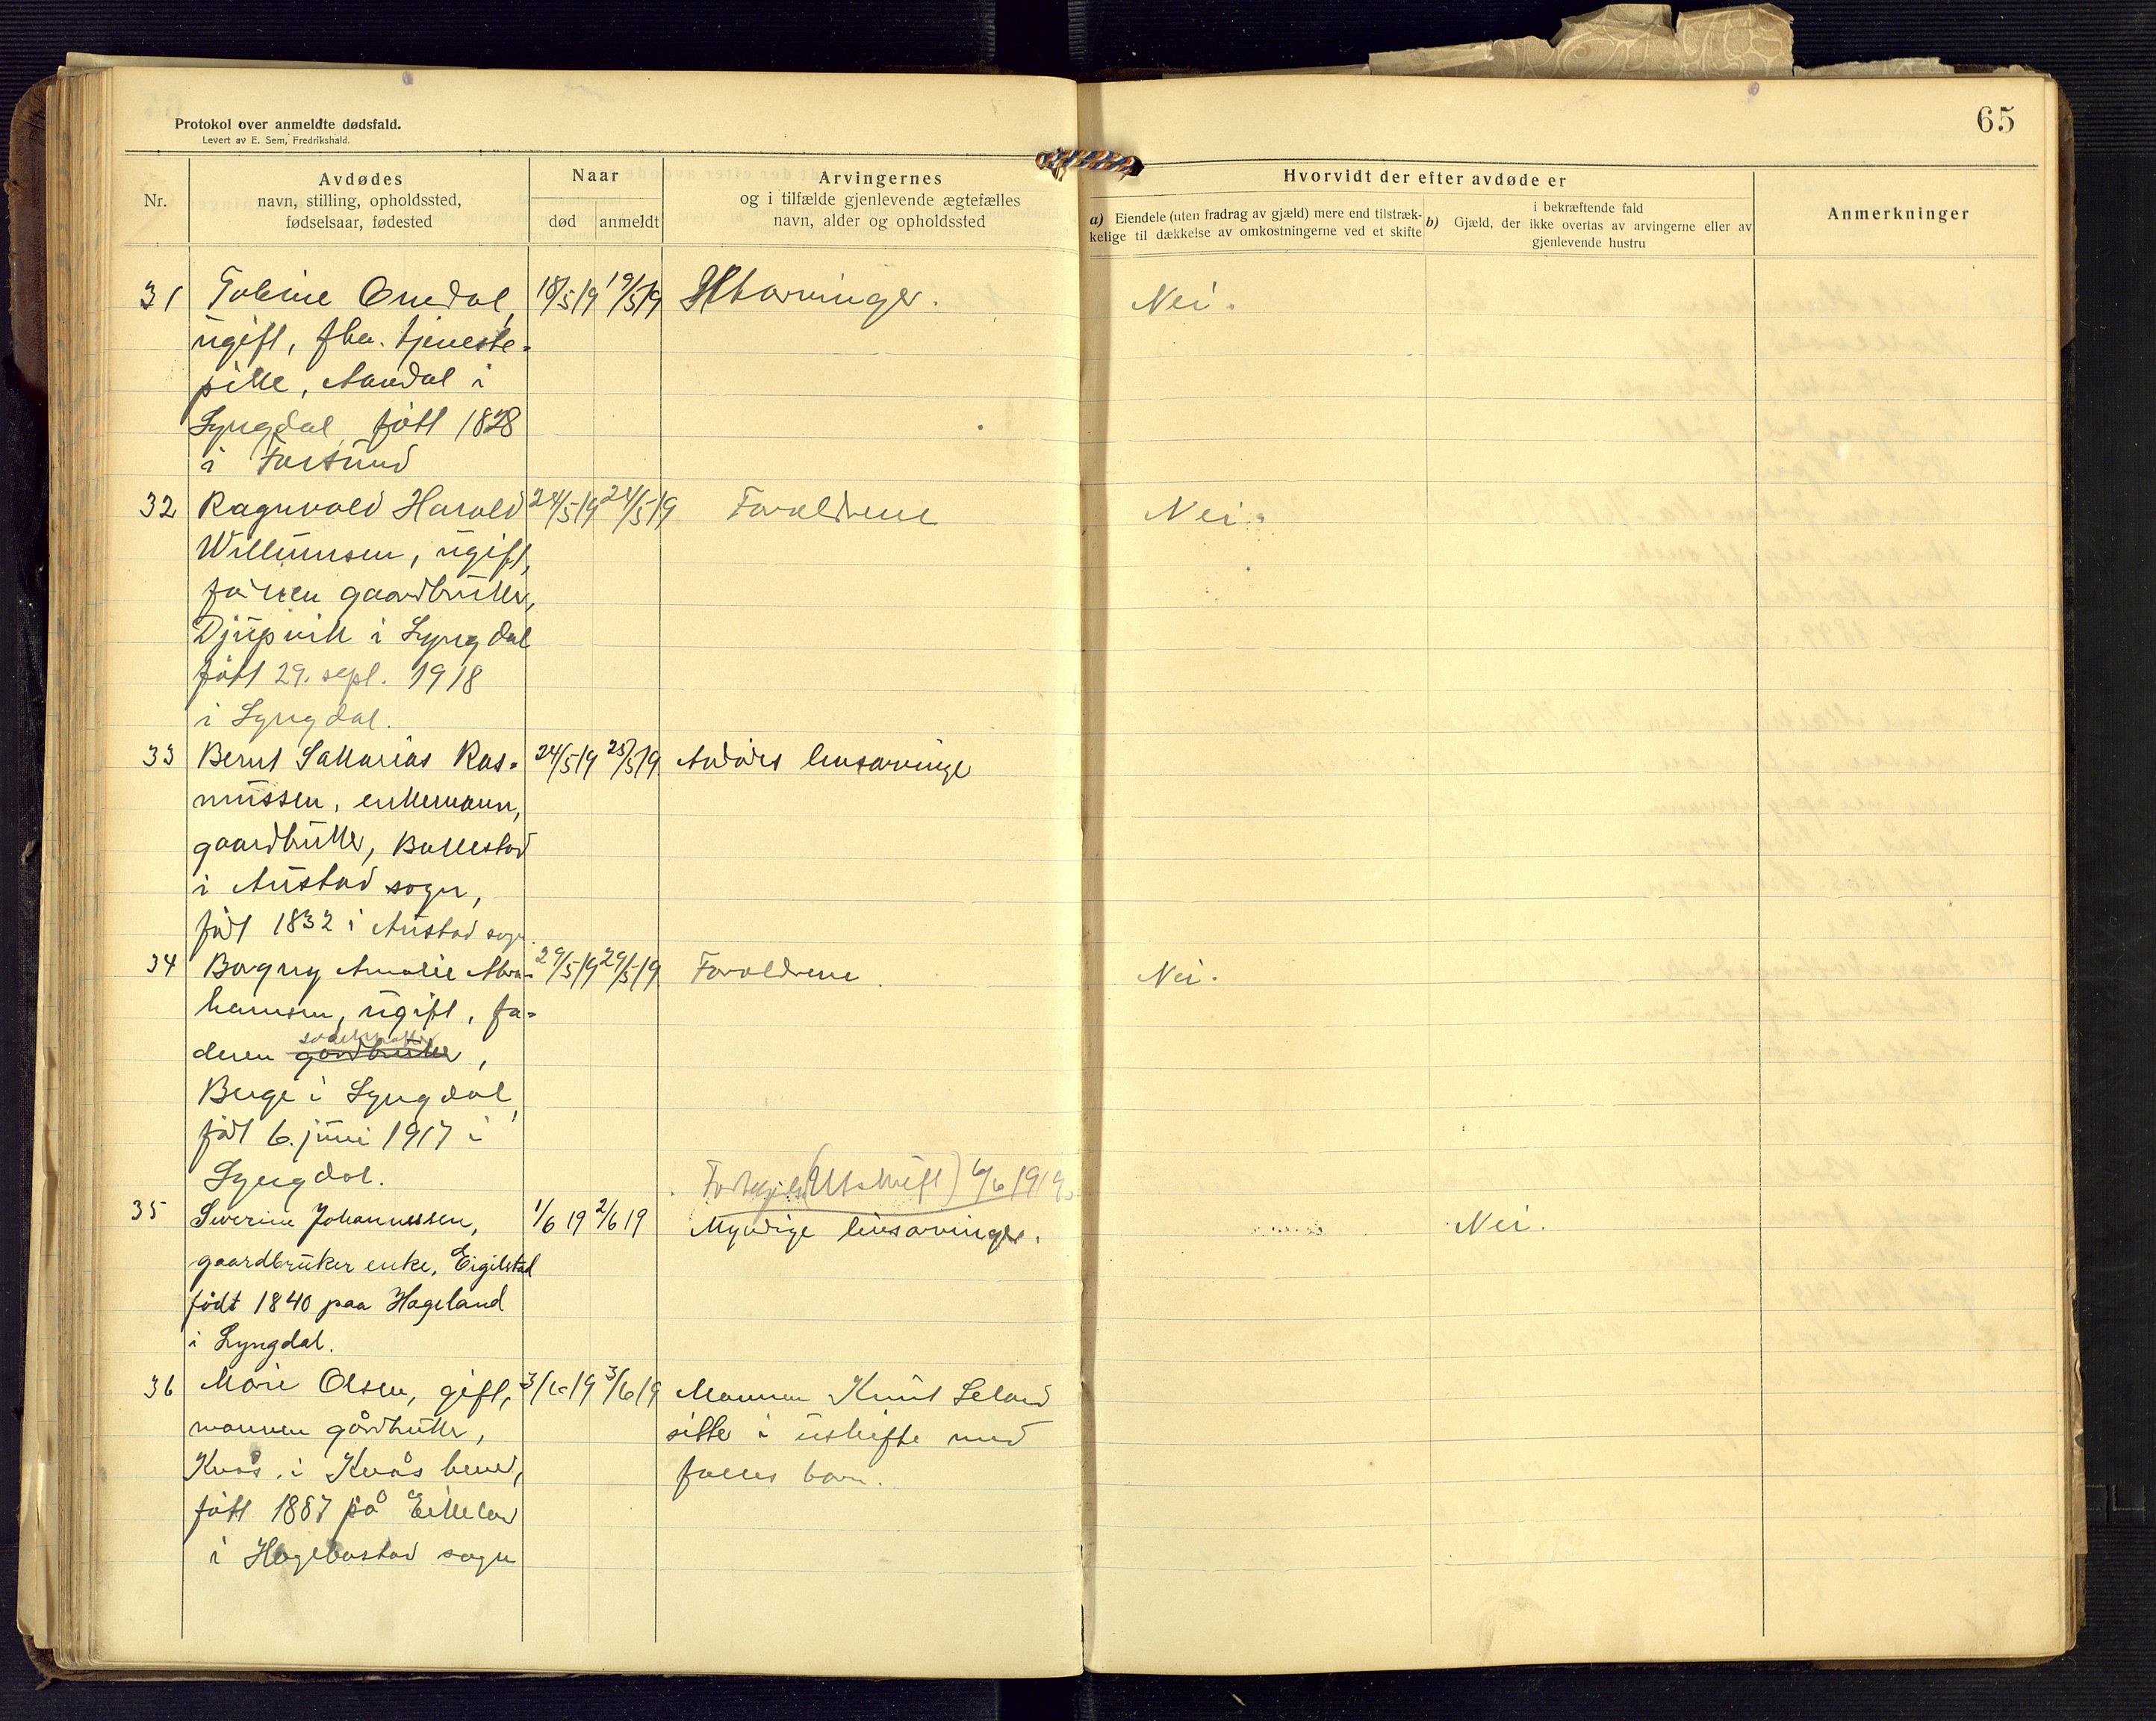 Protokol over anmeldte dødsfald.
Levert av E. Sem, Fredrikshald.
65
Nr.
Avdødes
navn, stilling, opholdssted,
fødselsaar, fødested
Naar
død
anmeldt
Arvingernes
og i tilfælde gjenlevende ægtefælles
navn, alder og opholdssted
Hvorvidt der efter avdøde er
a) Eiendele (uten fradrag av gjæld) mere end tilstræk-
kelige til dækkelse av omkostningerne ved et skifte
b) i bekræftende fald
Gjæld, der ikke overtas av arvingerne eller av
gjenlevende hustru
Anmerkninger
31 Tobine Omdal, 18/5 19 19/5 19 Utarvinger. Nei.
ugift, fhv. tjeneste-
pike, Aamdal i
Lyngdal, født 1828
i Farsund
32 Ragnvald Harald 24/5 19 24/5 19 Forældrene Nei.
Willumsen, ugift,
faren gaardbruker,
Djupvik i Lyngdal
født 29. sept. 1918
i Lyngdal.
33 Bernt Sakarias Ras- 24/5 19 25/5 19 Avdødes livsarvinge
mussen, enkemann,
gaardbruker, Bakkestad
i Austad sogn,
født 1832 i Austad sogn.
34 Borgny Amalie Abra- 29/5 19 29/5 19 Forældrene. Nei.
hamsen, ugift, fa-
deren gardbruker,
Berge i Lyngdal,
født 6. juni 1917 i
Lyngdal.
(Utskrift) 6/6 1919.
35 Severine Johannessen, 1/6 19 2/6 19 Myndige livsarvinger. Nei.
gaardbruker enke, Eigilstad
født 1840 paa Hageland
i Lyngdal.
36 Marie Olsen, gift, 3/6 19 3/6 19 Mannen Knut Seland
mannen gårdbruker, sitter i uskifte med
Kvås i Kvås herred, felles barn.
født 1887 på Eikeland
i Hægebostad sogn